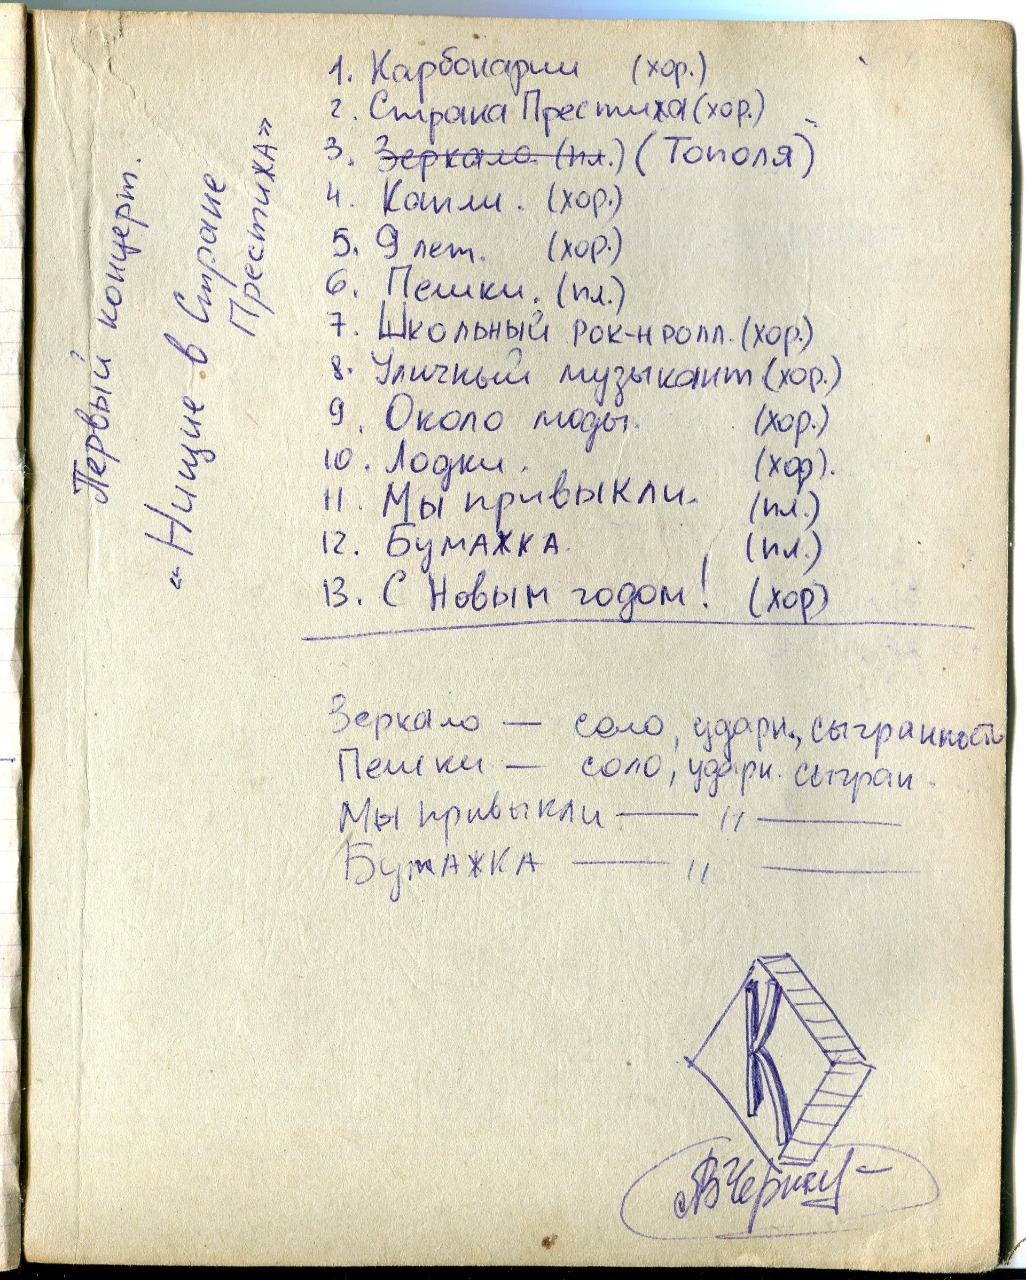 Первый концерт.
«Нищие в Стране
Престижа»
1. Карбонарии (хор.)
2. Страна Престижа (хор.)
3. Зеркало (пл.) (Тополя)
4. Капли. (хор.)
5. 9 лет. (хор.)
6. Пешки. (пл.)
7. Школьный рок-н ролл. (хор.)
8. Уличный музыкант (хор.)
9. Около моды. (хор.)
10. Лодки. (хор).
11. Мы привыкли. (пл.)
12. Бумажка. (пл.)
13. С Новым годом! (хор)
Зеркало — соло, ударн., сыгранность
Пешки — соло, ударн. сыгран.
Мы привыкли — " —
Бумажка — " —
К